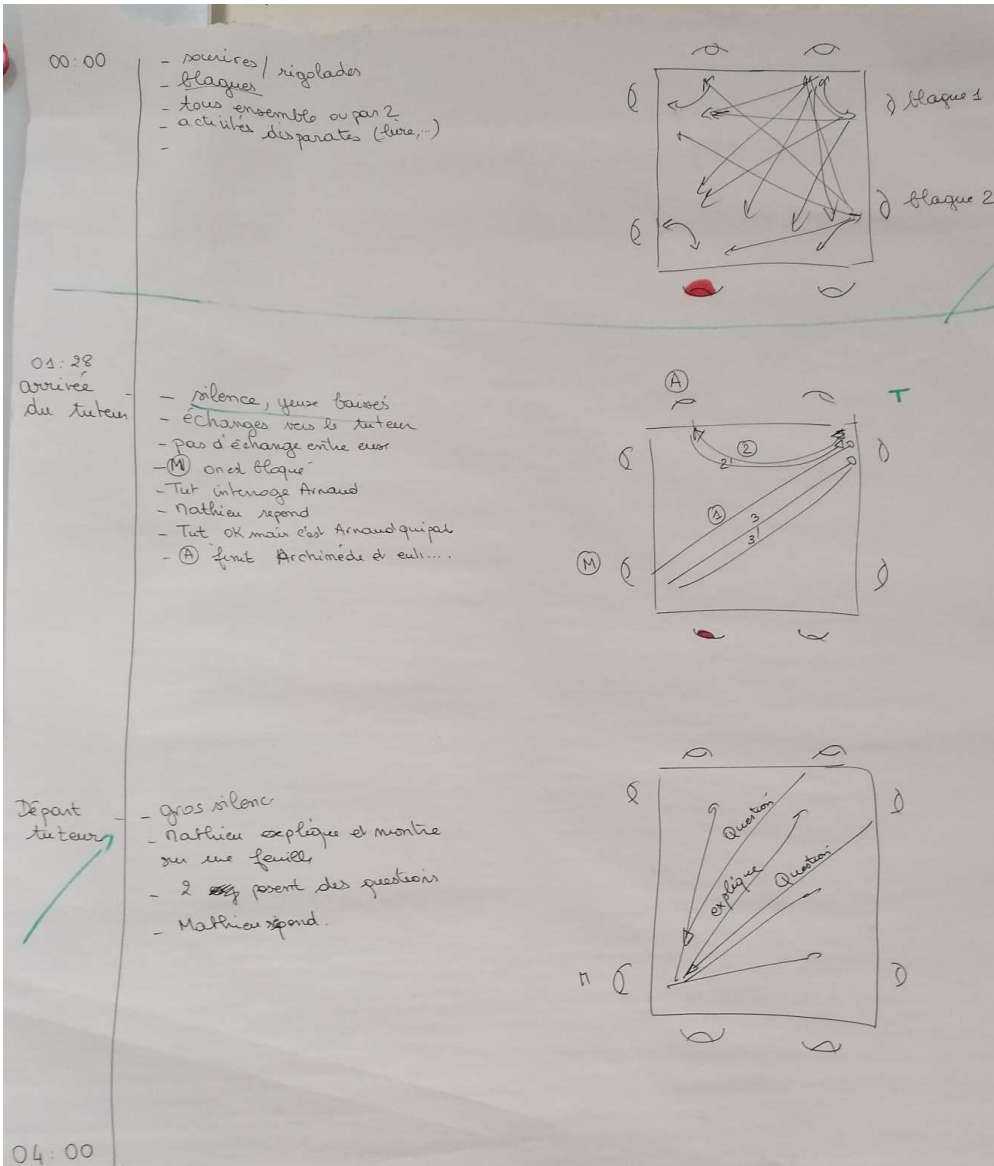 00:00
- sourires / rigolades
- blagues
- tous ensemble ou par 2
- activités disparates (lire,...)
-
blague 1
blague 2
01:28
arrivée
du tuteur
- silence, yeux baissés
- échanges vers le tuteur
- pas d'échange entre eux
- M on est bloqué
- Tut interroge Arnaud
- Mathieu repond
- Tut OK mais c'est Arnaud qui
- A finit Archimède et
A
T
2
2'
1
3
3'
M
Départ
tuteur
- gros silenc
- Mathieu explique et montre
sur une feuille
- 2 posent des questions
- Mathieu répond.
Question
explique
Question
M
04:00